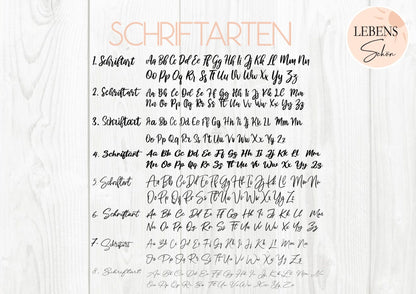 SCHRIFTARTEN
LEBENS
Schön
1. Schriftart Aa Bb Cc Dd Ee Ff Gg Hh Ii Jj Kk Ll Mm Nn
Oo Pp Qq Rr Ss Tt Uu Vv Ww Xx Yy Zz
2. Schriftart Aa Bb Cc Dd Ee Ff Gg Hh Ii Jj Kk Ll Mm
Nn Oo Pp Qq Rr Ss Tt Uu Vv Ww Xx Yy Zz
3. Schriftart Aa Bb Cc Dd Ee Ff Gg Hh Ii Jj Kk Ll Mm Nn
Oo Pp Qq Rr Ss Tt Uu Vv Ww Xx Yy Zz
4. Schriftart Aa Bb Cc Dd Ee Ff Gg Hh Ii Jj Kk Ll Mm
Nn Oo Pp Qq Rr Ss Tt Uu Vv Ww Xx Yy Zz
5. Schriftart Aa Bb Cc Dd Ee Ff Gg Hh Ii Jj Kk Ll Mm Nn
Oo Pp Qq Rr Ss Tt Uu Vv Ww Xx Yy Zz
6. Schriftart Aa Bb Cc Dd Ee Ff Gg Hh Ii Jj Kk Ll Mm
Nn Oo Pp Qq Rr Ss Tt Uu Vv Ww Xx Yy Zz
7. Schriftart Aa Bb Cc Dd Ee Ff Gg Hh Ii Jj Kk Ll Mm
Nn Oo Pp Qq Rr Ss Tt Uu Vv Ww Xx Yy Zz
8. Schriftart Aa Bb Cc Dd Ee Ff Gg Hh Ii Jj Kk Ll Mm
Nn Oo Pp Qq Rr Ss Tt Uu Vv Ww Xx Yy Zz